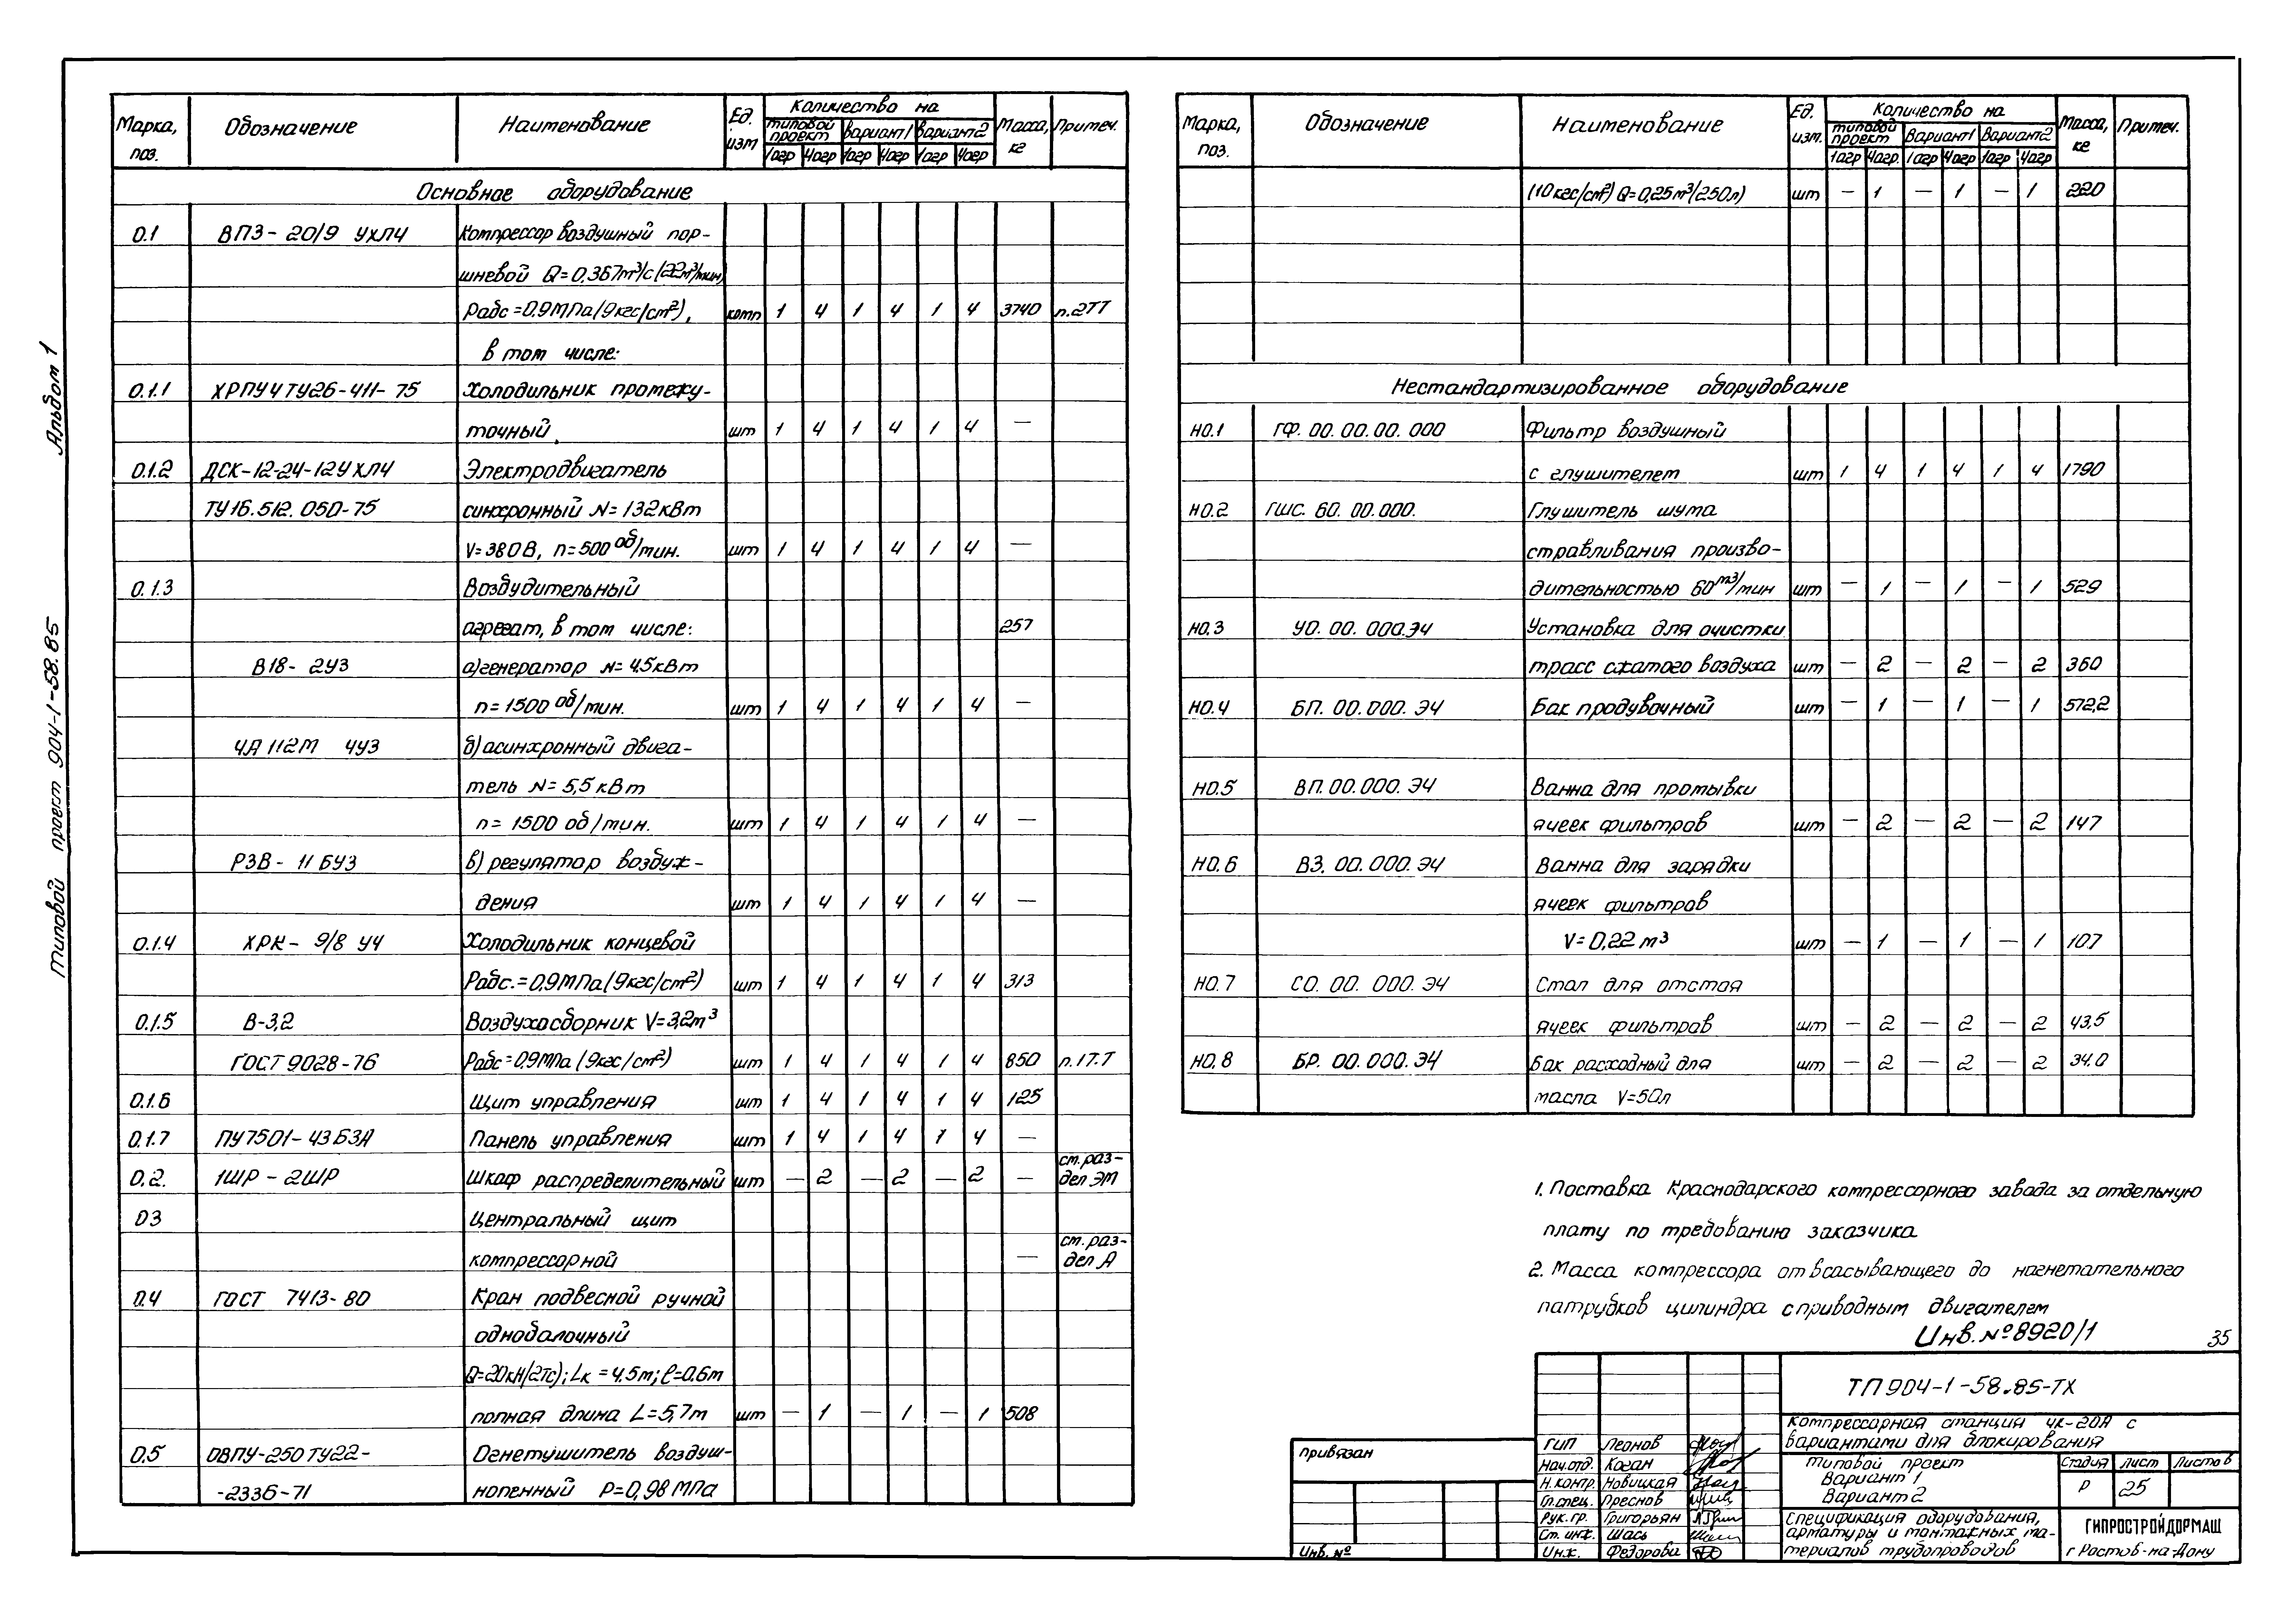 Альбом 1
Типовой проект 904-1-58.85
Марка, поз.
Обозначение
Наименование
Ед. изм
Количество на
типовой проект вариант1 вариант2
1агр 4агр 1агр 4агр 1агр 4агр
Масса, кг
Примеч.
Основное оборудование
0.1 ВПЗ-20/9 УХЛ4 Компрессор воздушный пор-
шневой Q=0,367м³/с(22м³/мин)
Рабс=0,9МПа(9кгс/см²), комп 1 4 1 4 1 4 3740 п.2ТТ
в том числе:
0.1.1 ХРПУ4 ТУ26-411-75 Холодильник промежу-
точный шт 1 4 1 4 1 4 —
0.1.2 ДСК-12-24-12УХЛ4 Электродвигатель
ТУ16.512.050-75 синхронный N=132кВт
V=380В, n=500 об/мин. шт 1 4 1 4 1 4 —
0.1.3 Возбудительный
агрегат, в том числе: 257
В18-2У3 а)генератор N=4.5кВт
n=1500 об/мин. шт 1 4 1 4 1 4 —
4А112М 4У3 б)асинхронный двига-
тель N=5,5кВт
n=1500 об/мин. шт 1 4 1 4 1 4 —
РЗВ-11БУ3 в)регулятор возбуж-
дения шт 1 4 1 4 1 4 —
0.1.4 ХРК-9/8 У4 Холодильник концевой
Рабс.=0,9МПа(9кгс/см²) шт 1 4 1 4 1 4 313
0.1.5 В-3,2 Воздухосборник V=3,2м³
ГОСТ 9028-76 Рабс=0,9МПа(9кгс/см²) шт 1 4 1 4 1 4 850 п.1Т.Т
0.1.6 Щит управления шт 1 4 1 4 1 4 125
0.1.7 ПУ7501-43Б3А Панель управления шт 1 4 1 4 1 4 —
0.2. 1ШР-2ШР Шкаф распределительный шт — 2 — 2 — 2 — см.раз-дел ЭМ
03 Центральный щит
компрессорной — см.раз-дел А
0.4 ГОСТ 7413-80 Кран подвесной ручной
однобалочный
Q=20кН(2Тс); Lк=4,5м; ℓ=0.6м
полная длина L=5,7м шт — 1 — 1 — 1 508
0.5 ОВПУ-250ТУ22- Огнетушитель воздуш-
-2336-71 нопенный Р=0,98МПа
Марка, поз.
Обозначение
Наименование
Ед. изм.
Количество на
типовой проект Вариант1 Вариант2
1агр 4агр. 1агр 4агр 1агр 4агр
Масса, кг
Примеч.
(10кгс/см²) Q=0,25м³(250л) шт — 1 — 1 — 1 220
Нестандартизированное оборудование
Н0.1 ГФ.00.00.00.000 Фильтр воздушный
с глушителем шт 1 4 1 4 1 4 1790
Н0.2 ГШС.60.00.000. Глушитель шума
стравливания произво-
дительностью 60м³/мин шт — 1 — 1 — 1 529
Н0.3 УО.00.000.Э4 Установка для очистки
трасс сжатого воздуха шт — 2 — 2 — 2 360
Н0.4 БП.00.000.Э4 Бак продувочный шт — 1 — 1 — 1 572,2
Н0.5 ВП.00.000.Э4 Ванна для промывки
ячеек фильтров шт — 2 — 2 — 2 147
Н0.6 ВЗ.00.000.Э4 Ванна для зарядки
ячеек фильтров
V=0,22м³ шт — 1 — 1 — 1 107
Н0.7 СО.00.000.Э4 Стол для отстоя
ячеек фильтров шт — 2 — 2 — 2 43,5
Н0.8 БР.00.000.Э4 Бак расходный для шт — 2 — 2 — 2 34.0
масла V=50л
1. Поставка Краснодарского компрессорного завода за отдельную
плату по требованию заказчика
2. Масса компрессора от всасывающего до нагнетательного
патрубков цилиндра с приводным двигателем
Инв.№8920/1 35
ТП904-1-58.85-ТХ
Компрессорная станция 4К-20А с
вариантами для блокирования
Типовой проект
Вариант 1
Вариант 2
Стадия Лист Листов
Р 25
Спецификация оборудования,
арматуры и монтажных ма-
териалов трубопроводов
ГИПРОСТРОЙДОРМАШ
г Ростов-на-Дону
ГИП Леонов
Нач.отд. Коган
Н.контр. Новицкая
Гл.спец. Преснов
Рук.гр. Григорьян
Ст.инж. Шась
Инж. Федорова
Привязан
Инв.№